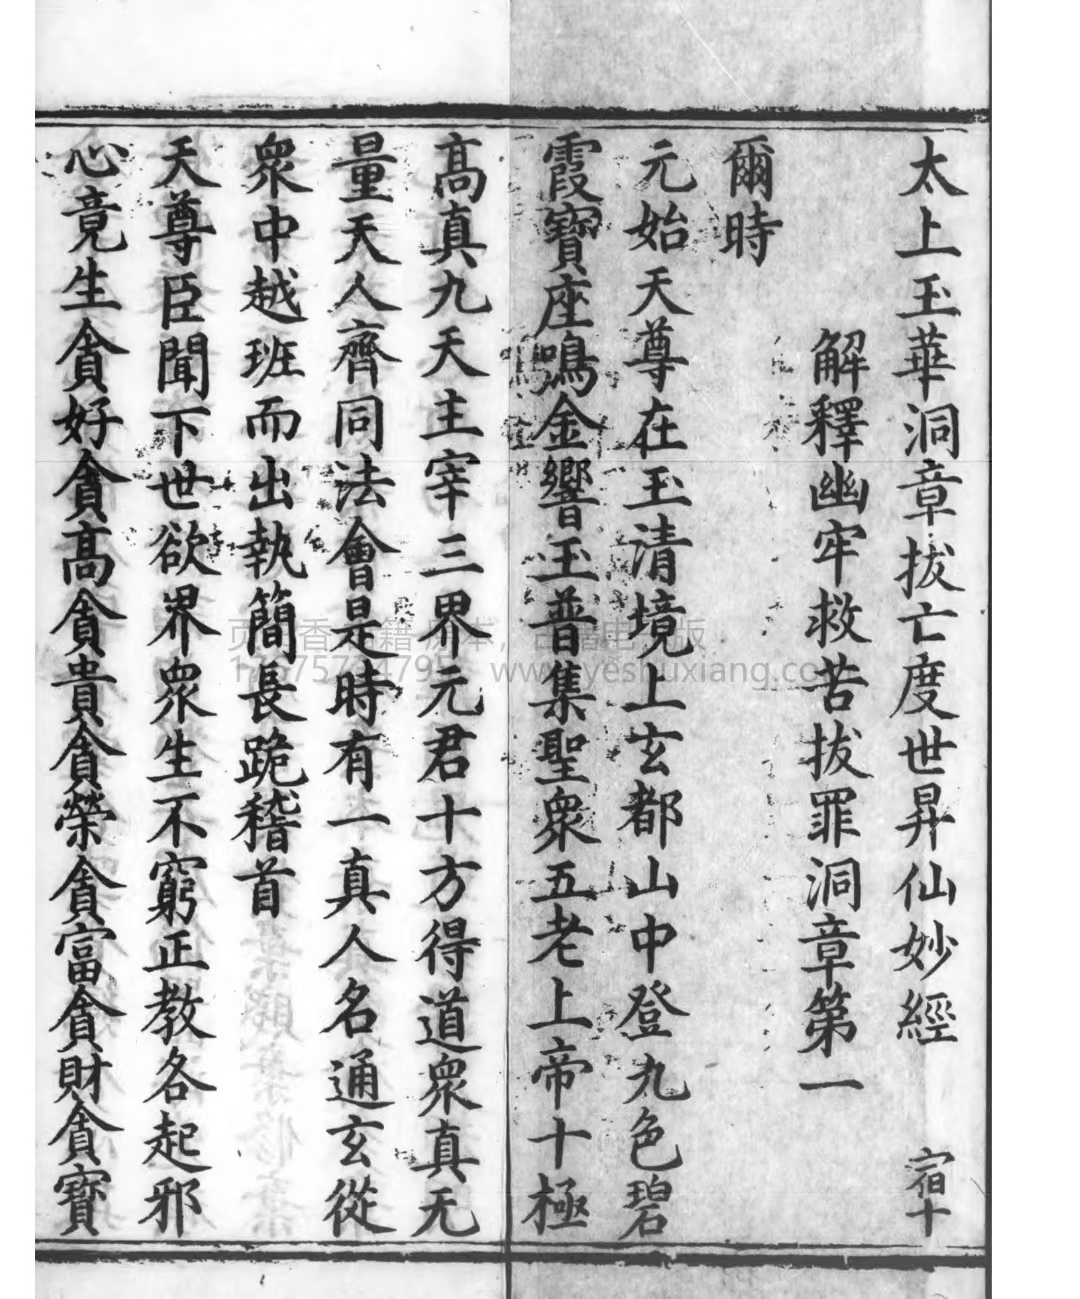 太上玉華洞章拔亡度世昇仙妙經 宿十
解釋幽牢救苦拔罪洞章第一
爾時
元始天尊在玉清境上玄都山中登九色碧
霞寶座鳴金響玉普集聖衆五老上帝十極
髙真九天主宰三界元君十方得道衆真无
量天人齊同法會是時有一真人名通玄從
衆中越班而出執簡長跪稽首
天尊臣聞下世欲界衆生不窮正教各起邪
心竟生貪好貪髙貪貴貪榮貪富貪財貪寳
www.yeshuxiang.co